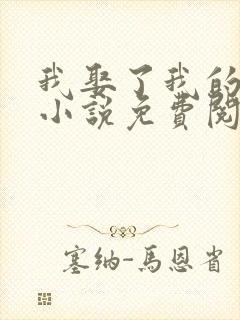 我娶了我的
小說免費閱
塞納-馬恩省